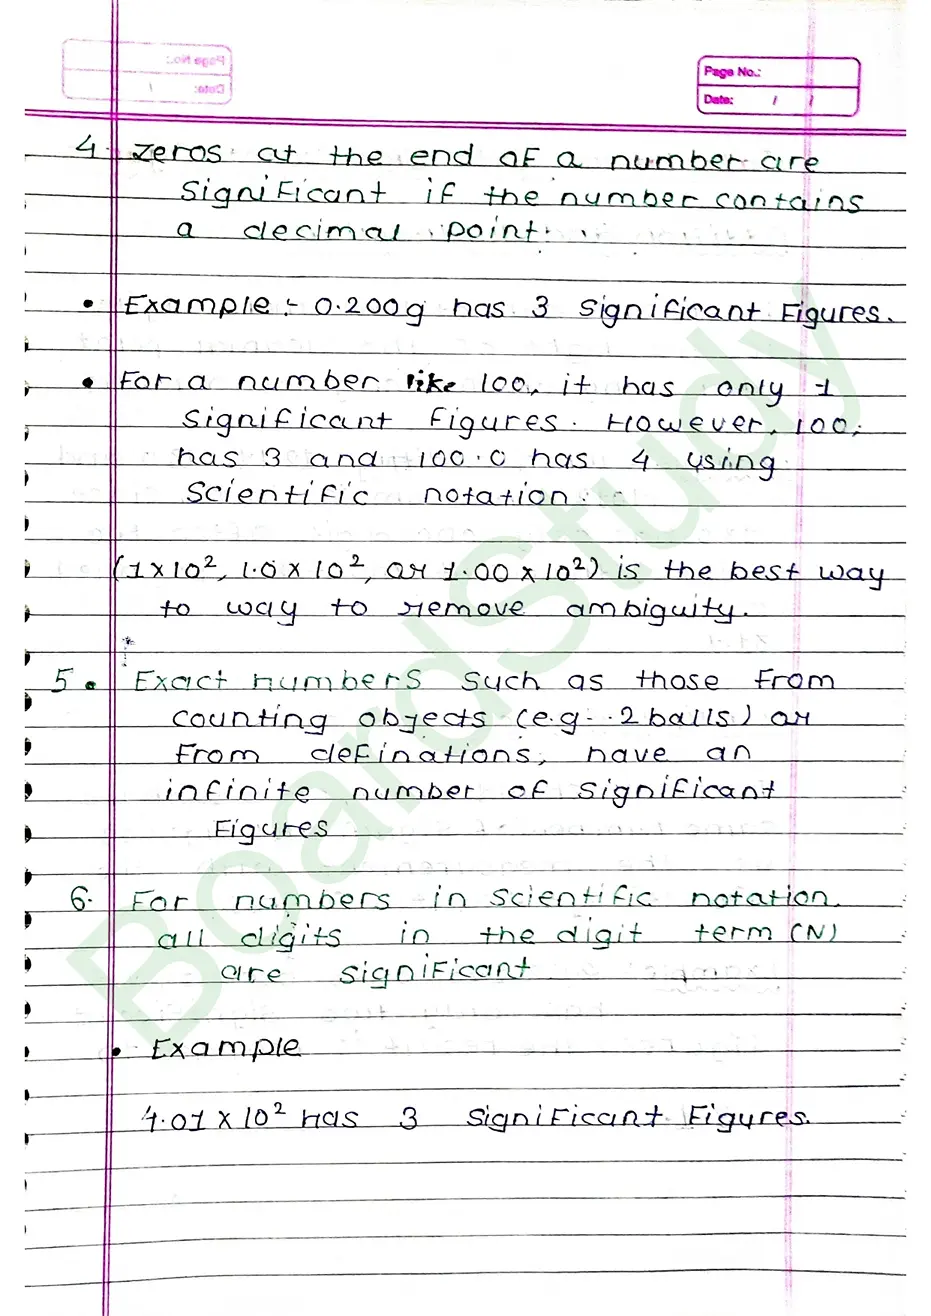 Page No.:
Date: / /
4. zeros at the end of a number are
significant if the number contains
a decimal point.
• Example :- 0.200g has 3 significant Figures.
• For a number like 100, it has only 1
significant figures. However, 100.
has 3 and 100.0 has 4 using
Scientific notation.
(1×10², 1.0×10², or 1.00×10²) is the best way
to way to remove ambiguity.
5. Exact numbers such as those from
counting objects (e.g. 2 balls) or
from definations, have an
infinite number of significant
Figures
6. For numbers in scientific notation.
all digits in the digit term (N)
are significant
• Example
4.01 × 10² has 3 significant Figures.
BoardStudy